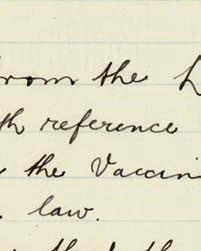 from the
th reference
the Vaccin
law.